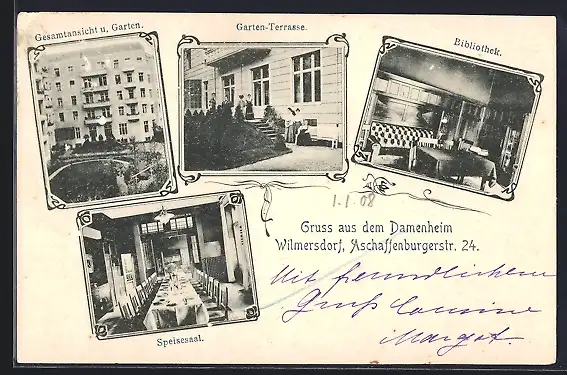 Gesamtansicht u. Garten.
Garten-Terrasse.
Bibliothek.
1.1.08
Gruss aus dem Damenheim
Wilmersdorf, Aschaffenburgerstr. 24.
Mit freundlichem
Gruß Cousine
Margot.
Speisesaal.